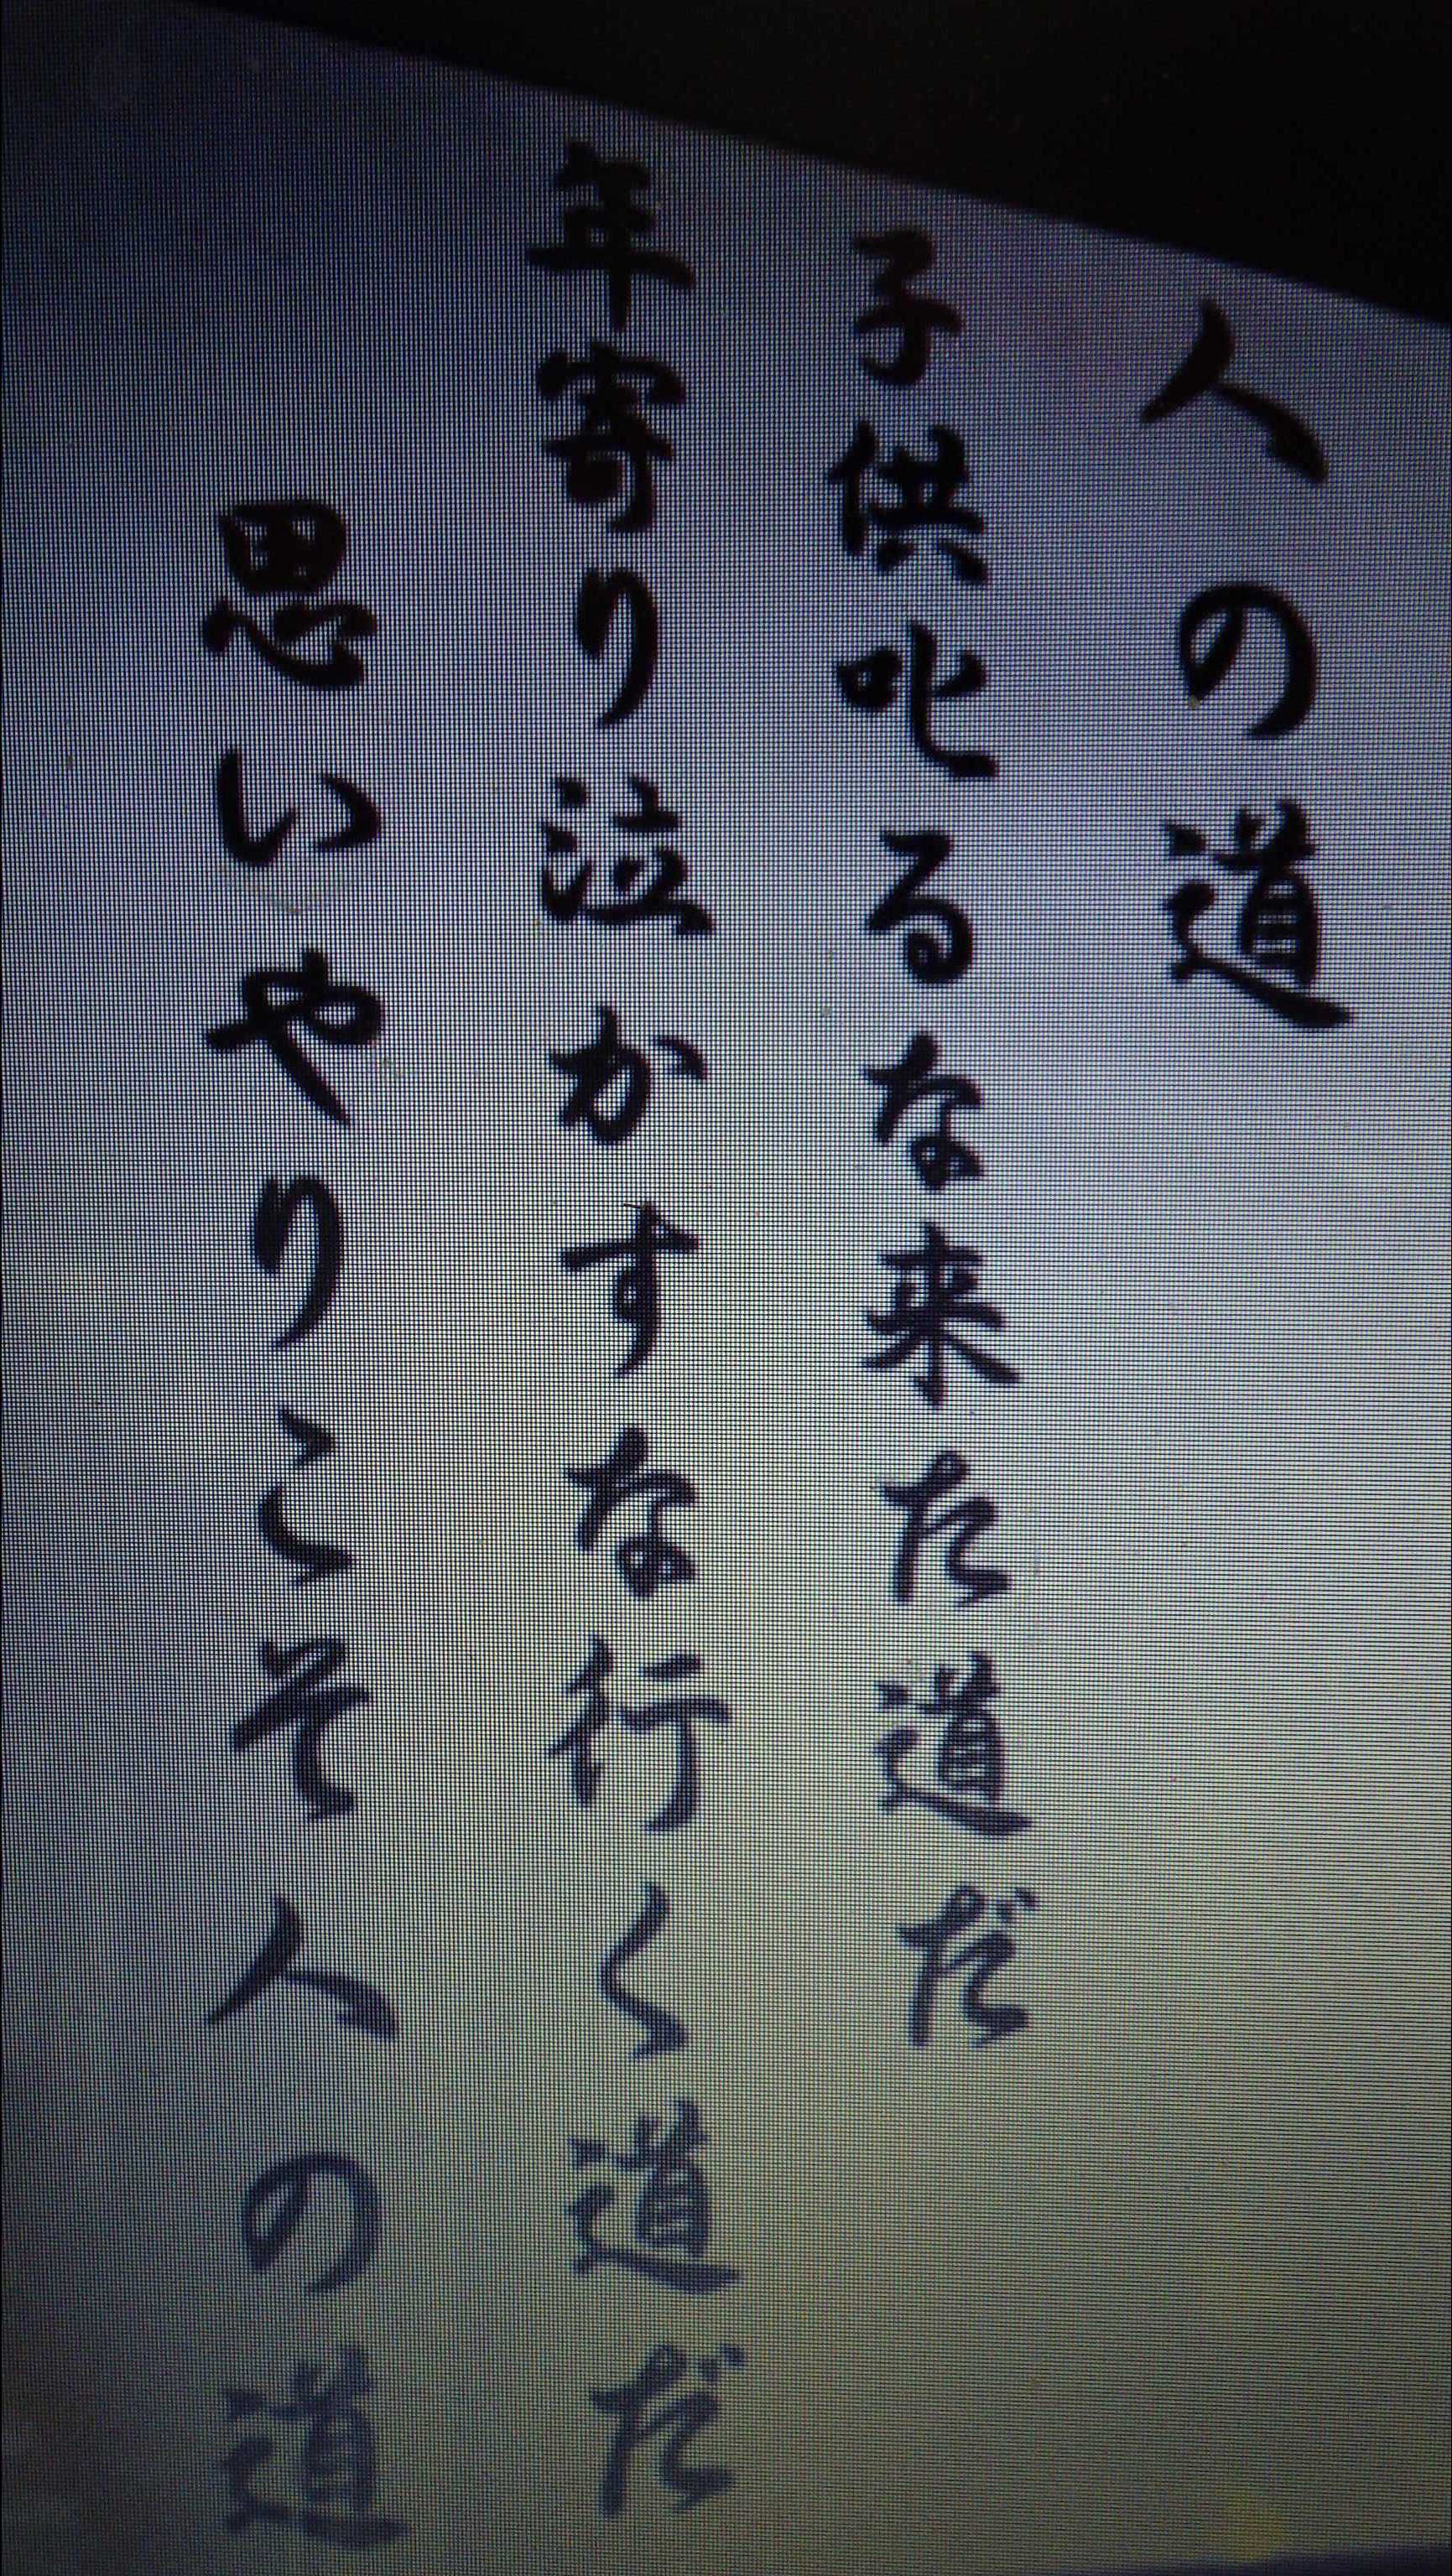 人の道
子供叱るな来た道だ
年寄り泣かすな行く道だ
思いやりこそ人の道